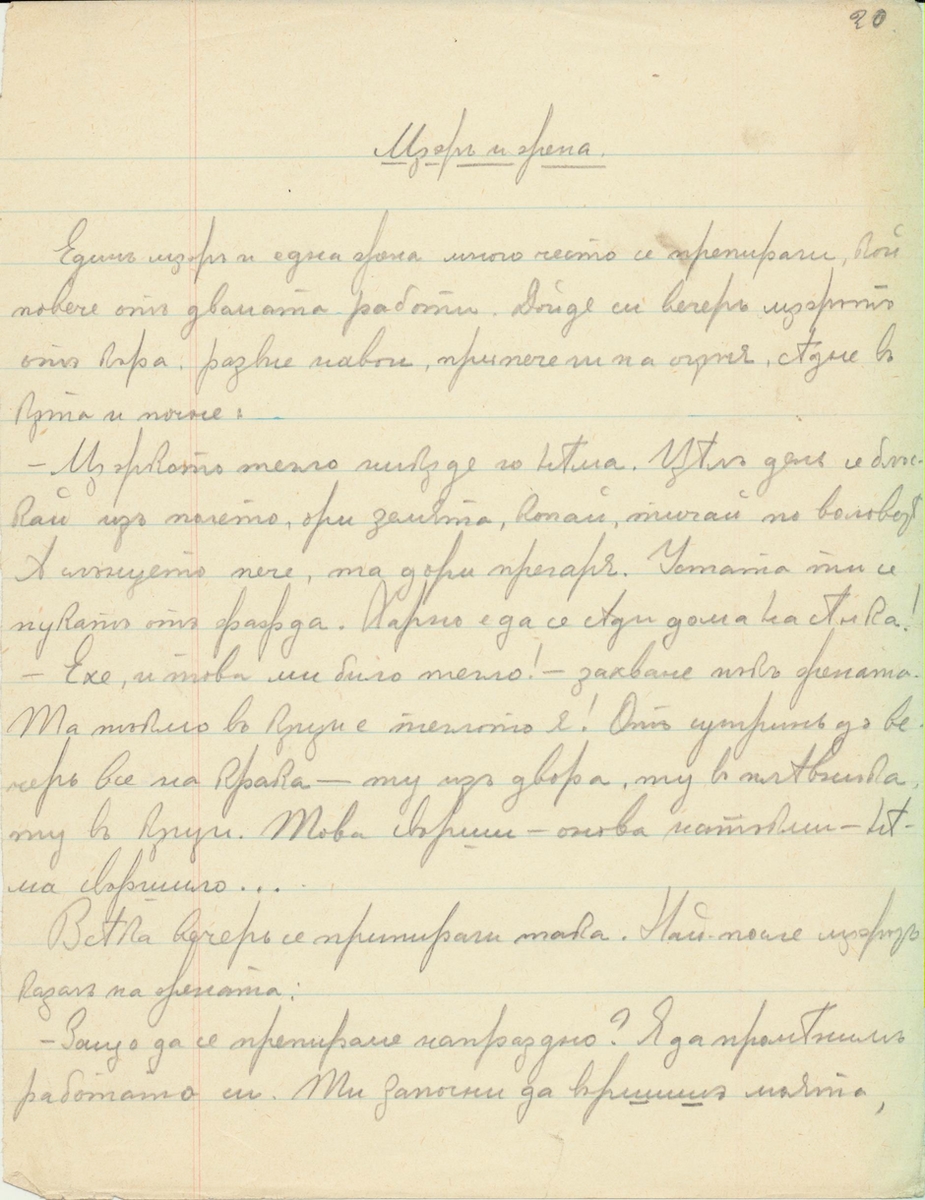 20
Мѫжъ и жена.
Единъ мѫжъ и една жена много често се препирали, кой
повече отъ двамата работи. Дойде си вечерь мѫжътъ
отъ къра, развие навои, припече ги на огъня, седне въ
кѫта и почне:
– Мѫжкото тегло никѫде го нѣма. Цѣлъ день се блъс-
кай изъ полето, ори земята, копай, тичай по воловетѣ
А слънцето пече, та дори прегаря. Устата ти се
пукатъ отъ жажда. Харно е да се сѣди дома на сѣнка!
– Ехе, и това ми било тегло! – захване пъкъ жената.
Та тъкмо въ кѫщи е теглото я! Отъ сутринь до ве-
черь все на крака – ту изъ двора, ту въ плѣвника,
ту въ кѫщи. Това свърши – онова натъкми – нѣ-
ма свършило...
Всѣка вечерь се припирали така. Най-после мѫжътъ
казалъ на жената:
– Защо да се препираме напраздно? Я да промѣнимъ
работата си. Ти започни да вършишъ моята,